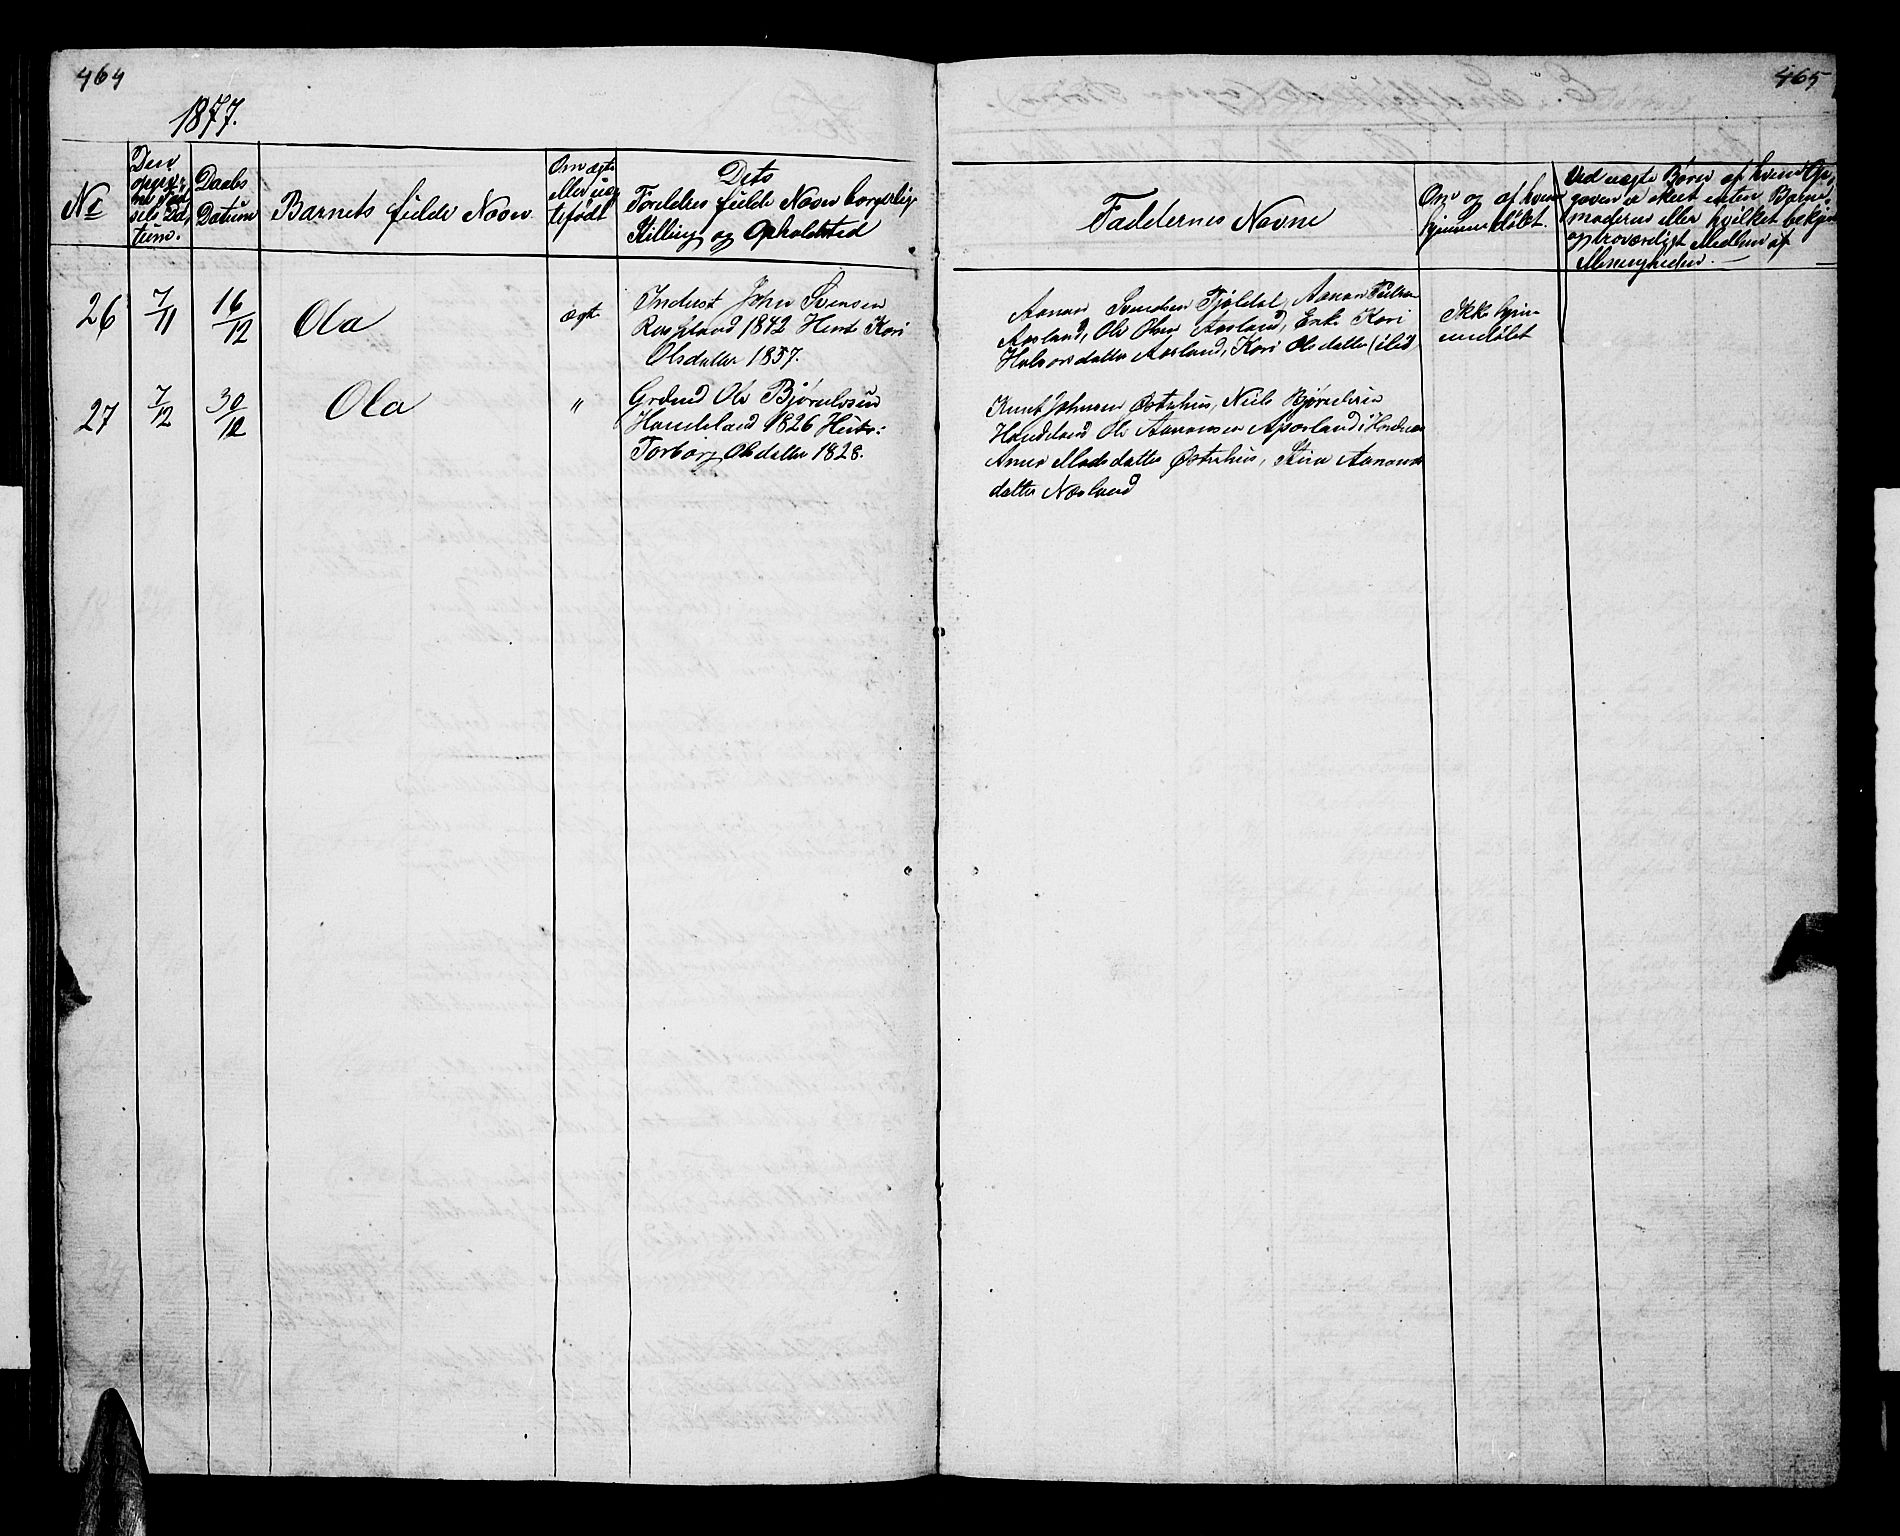 464
1877.
No
Den
opgiv-
ne Fød
sels Da
tum.
Daabs
Datum
Barnets fulde Navn
Om ægte
eller uæg
tefødt
Dets
Forældres fulde Navn borgerlige
Stilling og Opholdsted
26
7/11
16/12
Ola
ægte
Inderst John Svensen
1842 Hust Kari
Olsdatter 1857.
27
7/12
30/12
Ola
"
Grdmd Ole Bjørnulvsen
Handeland 1826 Hust:
Torborg Olsdatter 1828.
465
Faddernes Navne
Om og af hvem
hjemmedøbt.
Ved uægte Børn af hvem Op
gaven er skeet enten Barne
moderen eller hvilket bekjen
og troværdigt Medlem af
Menigheden.
Aanon Svendsen Fjeldal, Aanon
Aasland, Ole Olsen Aasland, Enke Kari
Halvorsdatter Aasland, Kari Olsdatter ibid
Ikke hjem-
medøbt
Knut Johnsen Østrehus, Niels Bjørnulvsen
Handeland Ole Aanonsen
Anne Madsdatter Østrehus, Aanons
datter